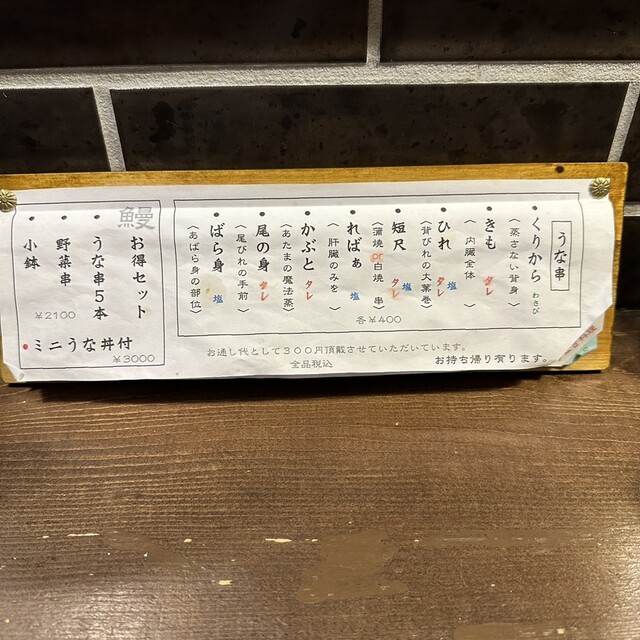 うな串
・くりから わさび
（蒸さない背身）
・きも タレ
（内臓全体）
・ひれ 塩
（背びれの大葉巻）タレ
・短尺 塩
（蒲焼or白焼 串）タレ
・ればぁ 塩
（肝臓のみを）
・かぶと タレ
（あたまの魔法蒸）
・尾の身 タレ
（尾びれの手前）
・ばら身 塩
（あばら身の部位）
各¥400
鰻 お得セット
・うな串5本
・野菜串
・小鉢
¥2100
・ミニうな丼付
¥3000
お通し代として300円頂戴させていただいています。
全品税込
お持ち帰り有ります。